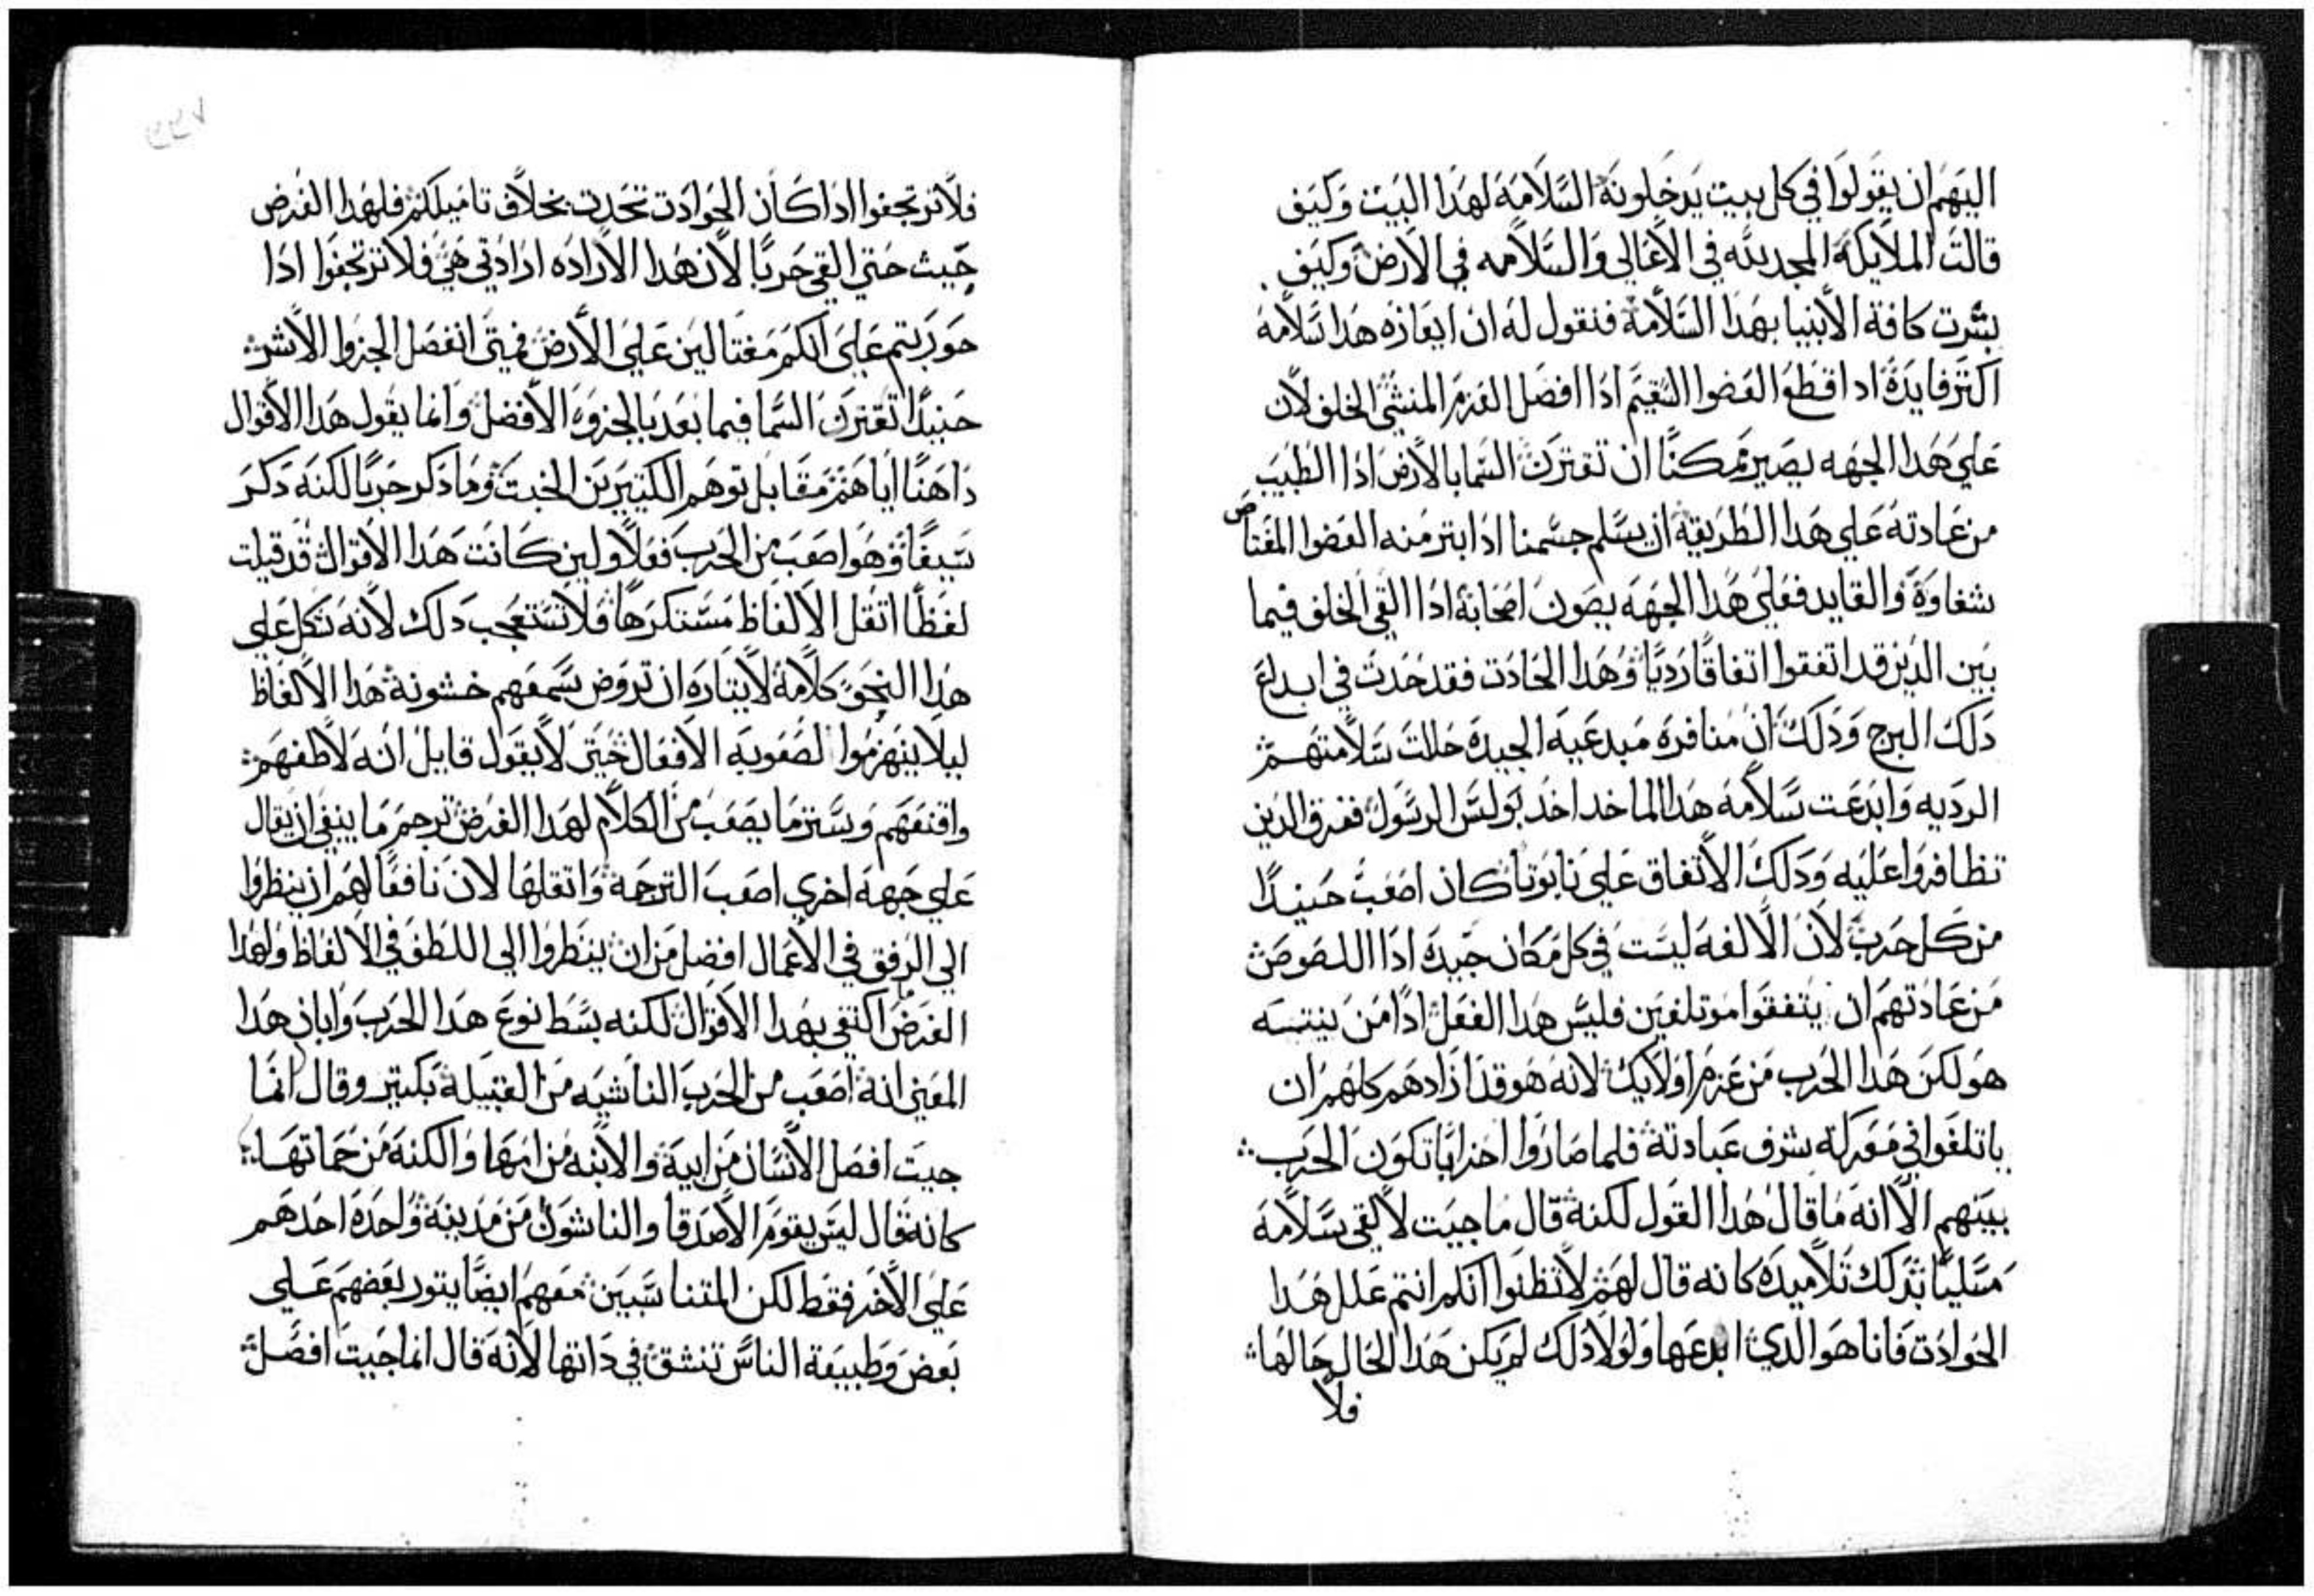 اليهم ان يقولوا في كل بيت يدخلونه السلامه لهدا البيت وكيف
قالت الملايكه المجد لله في الاعالي والسلامه في الارض وكيف
بشرت كافة الانبيا بهدا السلامة فنقول له ان ايعازه هدا سلامه
اكتر فايدة ادا قطع العضوا السقيم ادا افصل العزم المنشي الخلف لان
علي هدا الجهه يصير ممكنا ان تقترن السما بالارض ادا الطبيب
من عادته علي هدا الطريقه ان يسلم جسمنا ادا ابتر منه العضوا المغتاض
شفاوة والقايد فعلي هدا الجهه يصون اصحابه ادا القي الخلف فيما
بين الدين قد اتفقوا اتفاقا رديا وهدا الحادت فقد حدت في ابداع
دلك البرج ودلك ان منافرة مبدعيه الجيدة حللت سلامتهم
الرديه وابدعت سلامه هدا الما خدا خد بولس الرسول ففرق الدين
تظافروا عليه ودلك الاتفاق علي نابوتا كان اصعب حنيدا
من كل حرب لان الالفه ليست في كل مكان جيدة ادا اللصوص
من عادتهم ان يتفقوا موتلفين فليس هدا الفعل ادا من ينتسه
هو لكن هدا الحرب من عزم اولايك لانه هو قد ازادهم كلهم ان
ياتلفوا في معركه بشرف عبادتة فلما صاروا احزابا تكون الحرب
بينهم الا انه ما قال هدا القول لكنه قال ما جيت لالقي سلامه
مسليا بدلك تلاميده كانه قال لهم لا تظنوا انكم انتم علل هدا
الحوادت فانا هو الدي ابدعها ولولا دلك لم يكن هدا الحال حالها
فلا
فلا ترتجفوا ادا كان الحوادت تحدت بخلاف تاميلكم فلهدا الغرض
جيت حتي القي حربا لان هدا الاراده ارادتي هي فلا ترتجفوا ادا
حوربتم علي انكم مغتالين علي الارض فمتي انفصل الجزوا الاشر
حنيدا تقترن السما فيما بعد بالجزوه الافضل وانما يقول هدا الاقوال
داهنا اياهم مقابل توهم الكتيرين الخبت وما دكر حربا لكنه دكر
سيفا وهو اصعب من الحرب فعلا ولين كانت هدا الاقوال قد قيلت
لفظا اتقل الالفاظ مستكرها فلا تستعجب دلك لانه تكل علي
هدا النحو كلامه لايتاره ان تروض سمعهم خشونة هدا الالفاظ
ليلا ينهزموا لصعوبه الافعال حتي لا يقول قايل انه لاطفهم
واقنعهم وستر ما يصعب من الكلام لهدا الغرض ترجم ما ينبغي ان يقال
علي جهه اخري اصعب الترجمة واتقلها لان نافعا لهم ان ينظروا
الي الرفق في الاعمال افضل من ان ينظروا الي اللطف في الالفاظ ولهدا
الغرض ما اكتفي بهدا الاقوال لكنه بسط نوع هدا الحرب وابان هدا
المعني انه اصعب من الحرب الناشيه من القبيلة بكتير وقال انما
جيت افصل الانسان من ابية والابنه من امها والكنه من حماتها
كانه قال ليس يقوم الاصدقا والناشون من مدينة واحدة احدهم
علي الاخر فقط لكن المتناسبين معهم ايضا يتور بعضهم علي
بعض وطبيعة الناس تنشق في داتها لانه قال انما جيت افصل